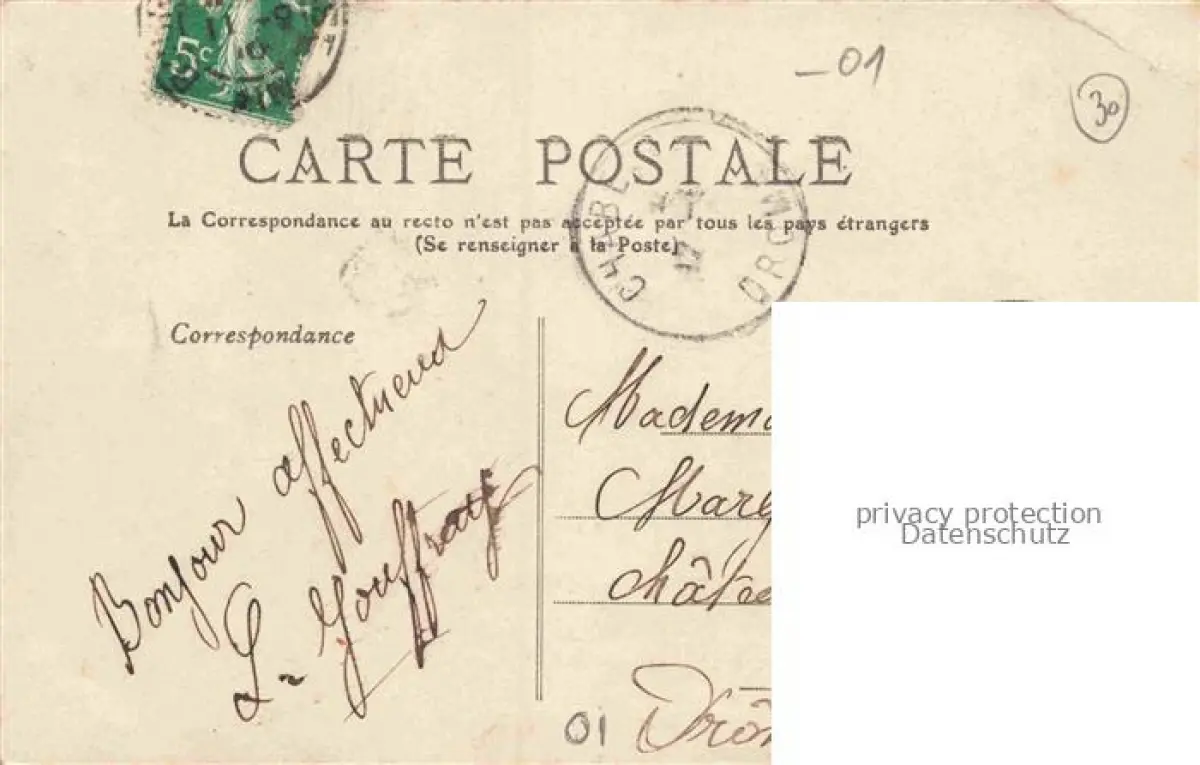 5c
-01
30
CARTE POSTALE
La Correspondance au recto n'est pas acceptée par tous les pays étrangers
(Se renseigner à la Poste)
CHABE
DROM
Correspondance
Bonjour affectueux
L-
Madem
Marg
châte
Drôm
01
privacy protection
Datenschutz